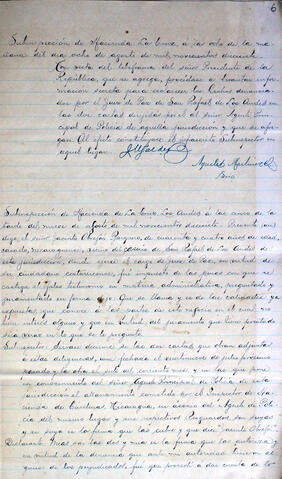 6
Subinspección de Hacienda. La Cruz, a las ocho de la ma-
ñana del día ocho de agosto de mil novecientos diecisiete
Con vista del telegrama del señor Presidente de la
República, que se agrega, procédase a levantar infor-
mación para esclarecer los hechos denuncia-
dos por el Juez de Paz de San Rafael de Los Andes en
las dos cartas dirigidas por él al señor Agente Prin-
cipal de Policía de aquella jurisdicción y que se agre-
gan. Al efecto constitúyase el Subinspector en
aquel lugar.
Srio
Subinspección de Hacienda de La Cruz. Los Andes a las cinco de la
tarde del mes de agosto de mil novecientos diecisiete. Presente
el señor Jacinto Obregón de cuarenta y cuatro años de edad,
casado, nicaragüense, vecino del caserío de San Rafael de Los Andes de
esta jurisdicción, donde ejerce el cargo de Juez de Paz, en virtud de
ser ciudadano costarricense, fué impuesto de las penas con que se
castiga el falso testimonio en materia administrativa, preguntado y
juramentado en forma dijo: Que se llama y es de las calidades ya
expuestas, que conoce a las partes de este informe en el cual no
tiene interés alguno y que en virtud del juramento que lleva prestado
dirá verdad en lo que se le pregunte.
de las dos cartas que obran adjuntas
a estas diligencias, una fechada el veintinueve de julio próximo
pasado y la otra el siete del corriente mes, y en las que pone
en conocimiento del señor Agente Principal de Policía de esta
jurisdicción el allanamiento cometido por el Inspector de Ha-
cienda de Cárdenas, Nicaragua, en asocio del Agente de Poli-
cía del mismo lugar y unos resguardos son suyas
y es suya la firma que las cubre y que dice "Jacinto Obregón".
Declarante: Mías son las dos y mía es la firma que las autoriza y
en virtud de la denuncia que ante mi autoridad hicieron al-
gunos de los perjudicados fué que procedí a dar cuenta de lo